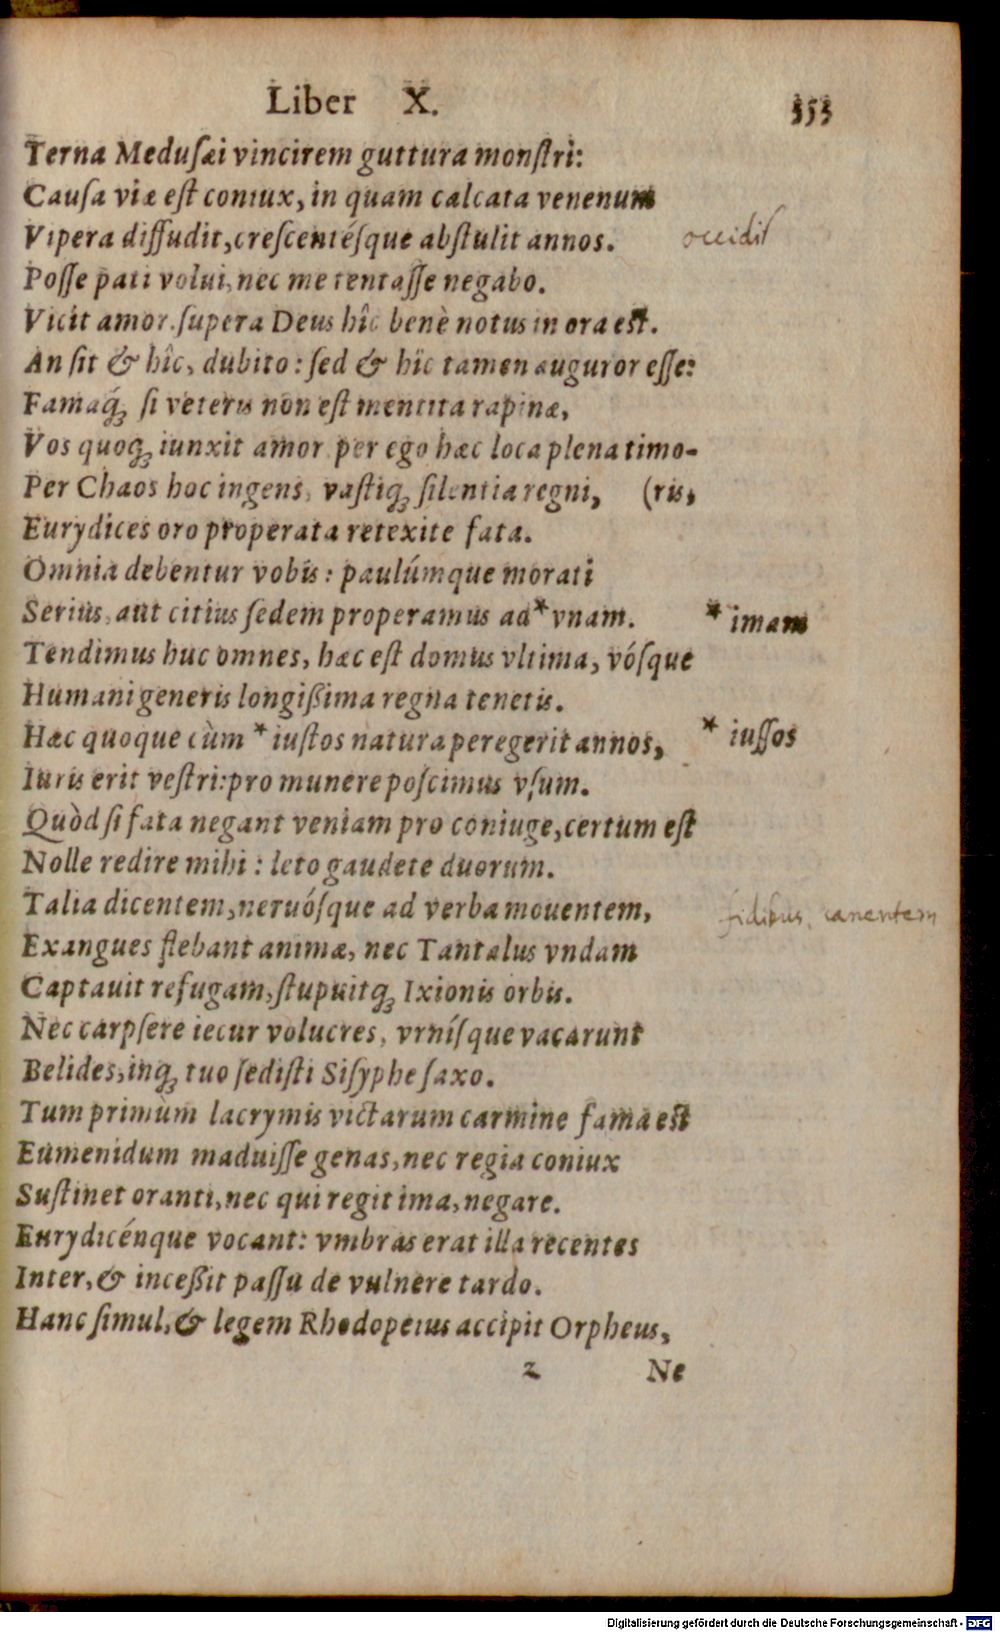 Liber X. 353
Terna Meduſæi vincirem guttura monſtri:
Cauſa viæ eſt coniux, in quam calcata venenum
Vipera diffudit, creſcentéſque abſtulit annos. occidit
Poſſe pati volui, nec me tentaſſe negabo.
Vicit amor. ſupera Deus hîc benè notus in ora eſt.
An ſit & hîc, dubito: ſed & hîc tamen auguror eſſe:
Famaq́ꝫ ſi veteris non eſt mentita rapinæ,
Vos quoqꝫ iunxit amor. per ego hæc loca plena timo-
Per Chaos hoc ingens, vaſtiqꝫ ſilentia regni, (ris,
Eurydices oro properata retexite fata.
Omnia debentur vobis: paulúmque morati
Serius, aut citius ſedem properamus ad * vnam. * imam
Tendimus huc omnes, hæc eſt domus vltima, vóſque
Humani generis longißima regna tenetis.
Hæc quoque cùm * iuſtos natura peregerit annos, * iuſſos
Iuris erit veſtri: pro munere poſcimus vſum.
Quòd ſi fata negant veniam pro coniuge, certum eſt
Nolle redire mihi: leto gaudete duorum.
Talia dicentem, neruóſque ad verba mouentem, fidibus, canentem
Exangues flebant animæ, nec Tantalus vndam
Captauit refugam, ſtupuitqꝫ Ixionis orbis.
Nec carpſere iecur volucres, vrníſque vacarunt
Belides, inqꝫ tuo ſediſti Siſyphe ſaxo.
Tum primùm lacrymis victarum carmine fama eſt
Eumenidum maduiſſe genas, nec regia coniux
Suſtinet oranti, nec qui regit ima, negare.
Eurydicénque vocant: vmbras erat illa recentes
Inter, & inceßit paſſu de vulnere tardo.
Hanc ſimul, & legem Rhodopeius accipit Orpheus,
z Ne
Digitalisierung gefördert durch die Deutsche Forschungsgemeinschaft - DFG